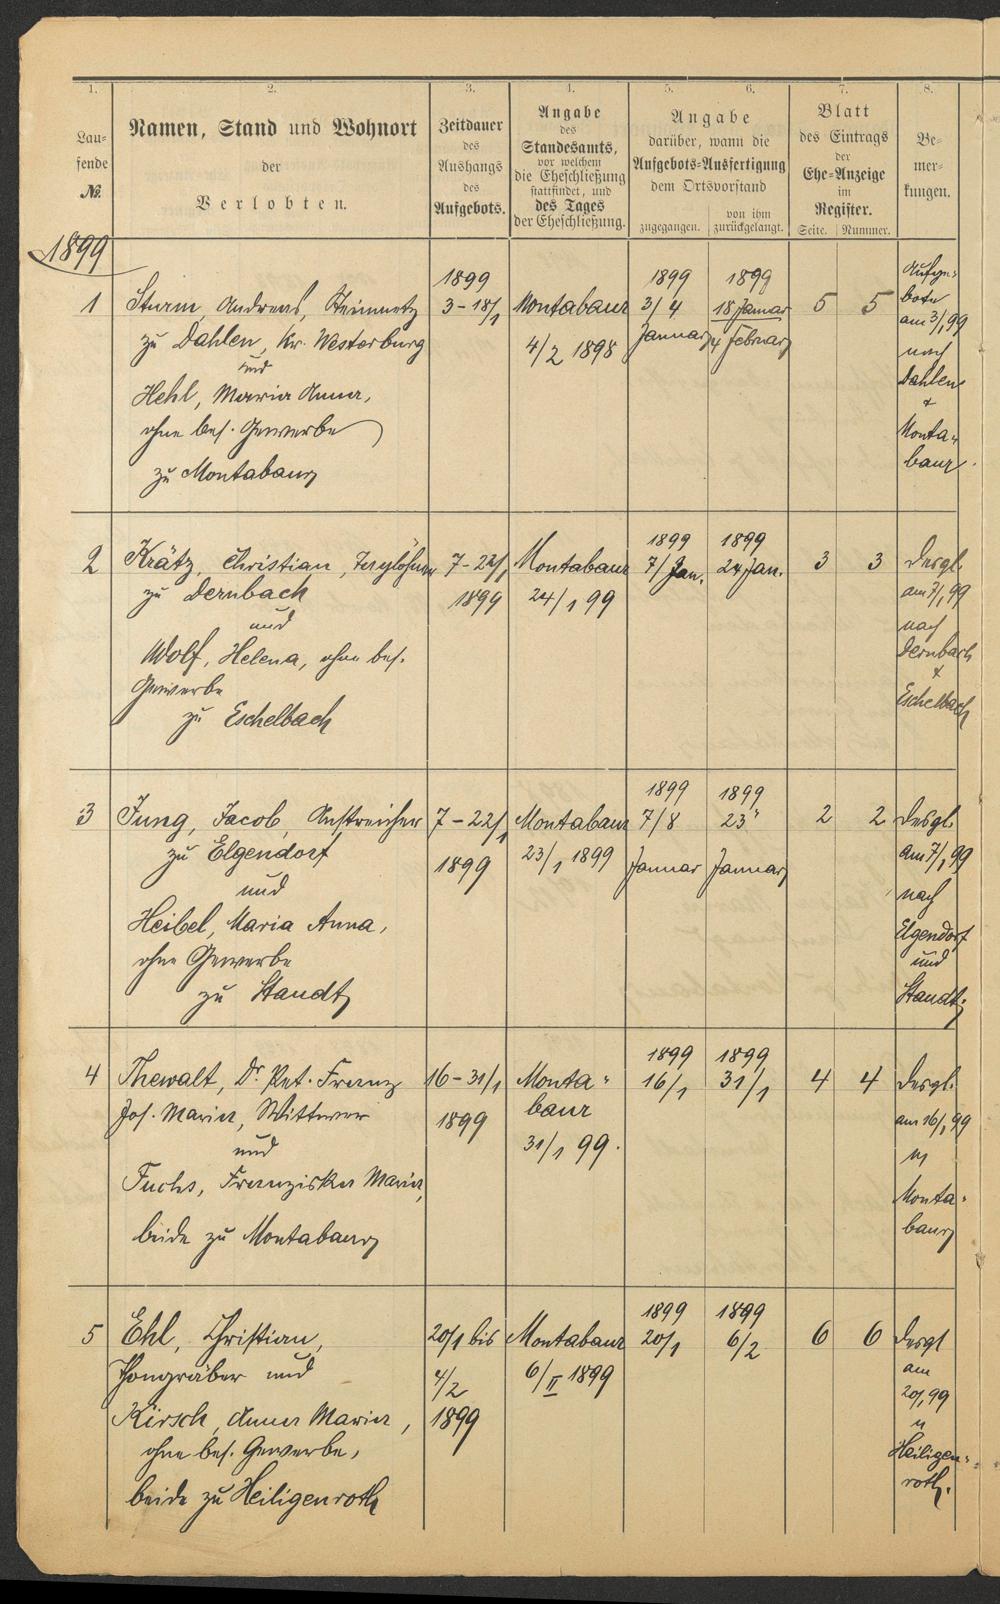 1.
2.
3.
4.
5.
6.
7.
8.
Lau-
fende
№.
Namen, Stand und Wohnort
der
Verlobten.
Zeitdauer
des
Aushangs
des
Aufgebots.
Angabe
des
Standesamts,
vor welchem
die Eheschließung
stattfindet, und
des Tages
der Eheschließung.
Angabe
darüber, wann die
Aufgebots-Ausfertigung
dem Ortsvorstand
zugegangen.
von ihm
zurückgelangt.
Blatt
des Eintrags
der
Ehe-Anzeige
im
Register.
Seite.
Nummer.
Be-
mer-
kungen.
1899
1
Sturm, Andreas, Steinmetz
zu Dahlen, Kr. Westerburg
und
Hehl, Maria Anna,
ohne bes. Gewerbe
zu Montabaur
1899
3-18/1
Montabaur
4/2 1898
1899
3/4
Januar
1899
18 Januar
4 Februar
5
5
Aufge-
bote
am 3/1 99
nach
Dahlen
+
Monta-
baur.
2
Krätz, Christian, Taglöhner
zu Dernbach
und
Wolf, Helena, ohne bes.
Gewerbe
zu Eschelbach
7-22/1
1899
Montabaur
24/1 99
1899
7/Jan.
1899
24 Jan.
3
3
Desgl.
am 7/1 99
nach
Dernbach
+
Eschelbach
3
Jung, Jacob, Anstreicher
zu Elgendorf
und
Heibel, Maria Anna,
ohne Gewerbe
zu Staudt
7-22/1
1899
Montabaur
23/1 1899
1899
7/8
Januar
1899
23"
Januar
2
2
Desgl.
am 7/1 99
nach
Elgendorf
und
Staudt.
4
Thewalt, Dr. Pet. Franz
Jos. Maria, Wittwer
und
Fuchs, Franziska Maria,
beide zu Montabaur
16-31/1
1899
Monta-
baur
31/1 99.
1899
16/1
1899
31/1
4
4
Desgl.
am 16/1 99
n
Monta-
baur
5
Ehl, Christian,
Thongräber und
Kirsch, Anna Maria,
ohne bes. Gewerbe,
beide zu Heiligenroth
20/1 bis
4/2
1899
Montabaur
6/II 1899
1899
20/1
1899
6/2
6
6
Desgl
am
20/1 99
n
Heiligen-
roth.